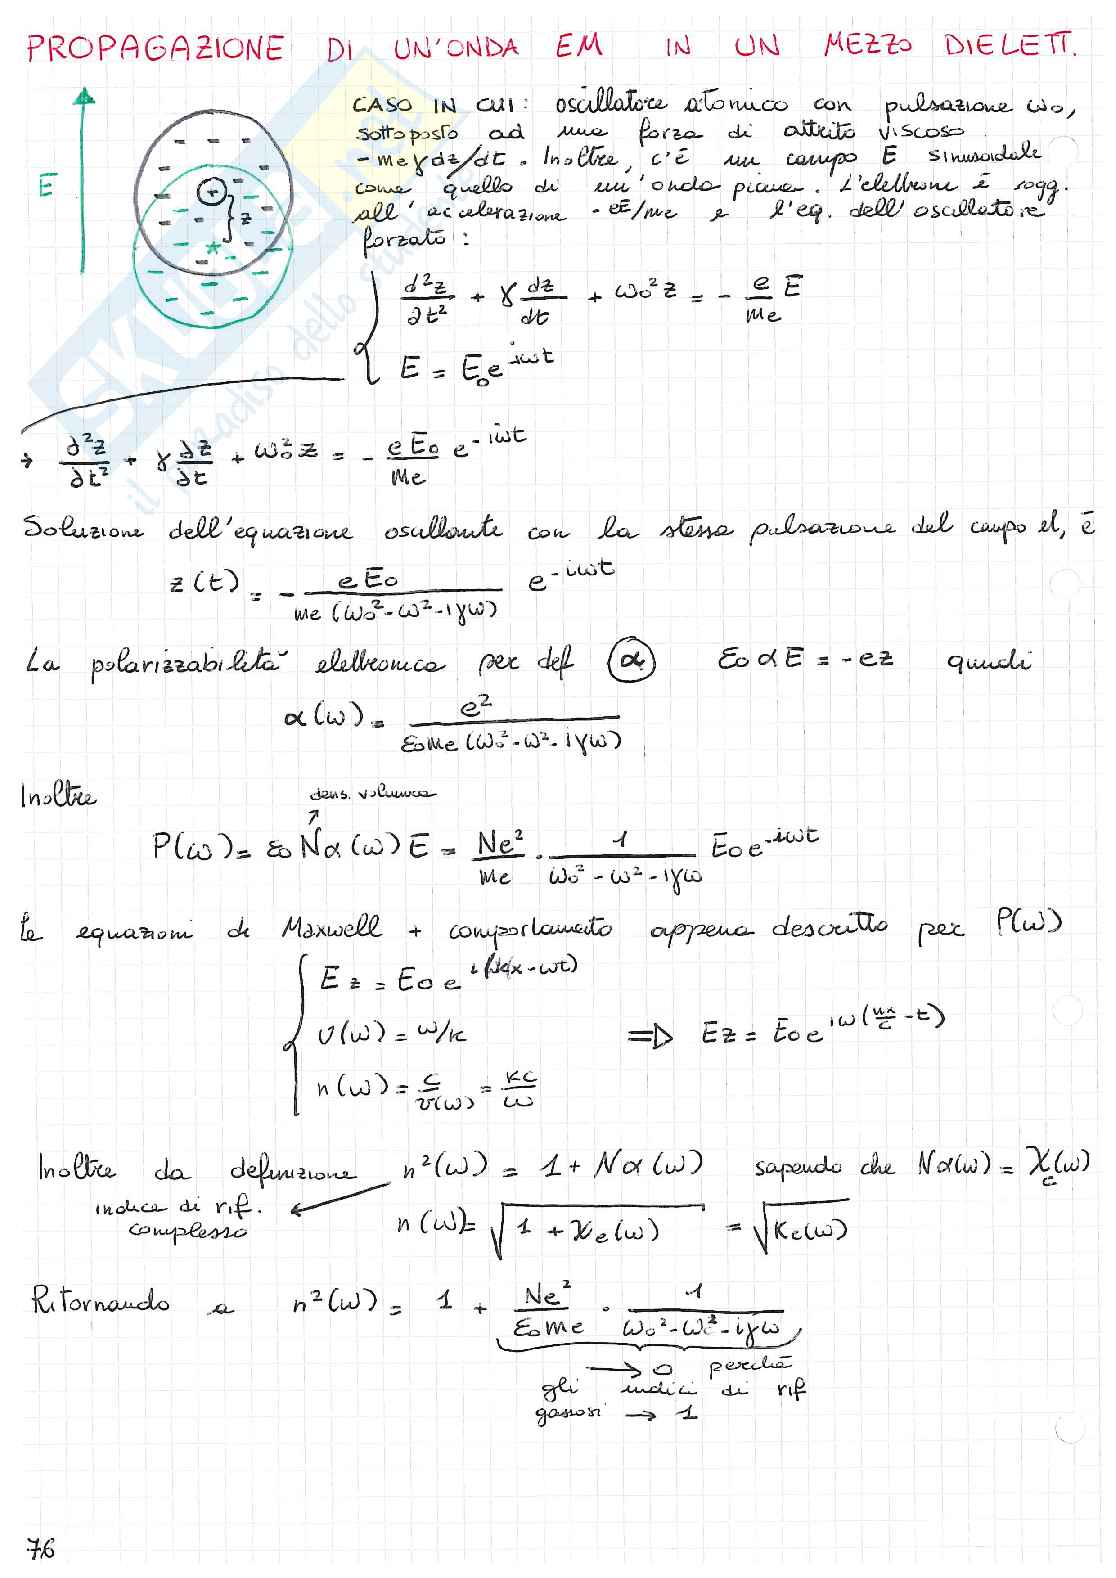 PROPAGAZIONE DI UN'ONDA EM IN UN MEZZO DIELETT.
CASO IN CUI: oscillatore atomico con pulsazione ω₀,
sottoposto ad una forza di attrito viscoso
- me γ dz/dt. Inoltre, c'è un campo E sinusoidale
come quello di un'onda piana. L'elettrone è sogg.
all'accelerazione -eE/me e l'eq. dell'oscillatore
forzato:
E
+
z
d²z/∂t² + γ dz/dt + ω₀²z = - e/me E
E = E₀e^-iωt
→ ∂²z/∂t² + γ ∂z/∂t + ω₀²z = - eE₀/me e^-iωt
Soluzione dell'equazione oscillante con la stessa pulsazione del campo el, è
z(t) = - eE₀/me(ω₀²-ω²-iγω) e^-iωt
La polarizzabilità elettronica per def α ε₀αE = -ez quindi
α(ω) = e²/ε₀me(ω₀²-ω²-iγω)
Inoltre
dens. volumica
P(ω) = ε₀Nα(ω)E = Ne²/me · 1/ω₀²-ω²-iγω E₀e^-iωt
Le equazioni di Maxwell + comportamento appena descritto per P(ω)
Ez = E₀e^i(kx-ωt)
v(ω) = ω/k ⇒ Ez = E₀e^iω(nx/c -t)
n(ω) = c/v(ω) = kc/ω
Inoltre da definizione n²(ω) = 1 + Nα(ω) sapendo che Nα(ω) = χe(ω)
indice di rif.
complesso
n(ω) = √1 + χe(ω) = √Ke(ω)
Ritornando a n²(ω) = 1 + Ne²/ε₀me · 1/ω₀²-ω²-iγω
→ 0 perché
gli indici di rif
gassosi → 1
76
SKUOLA.net
il paradiso dello